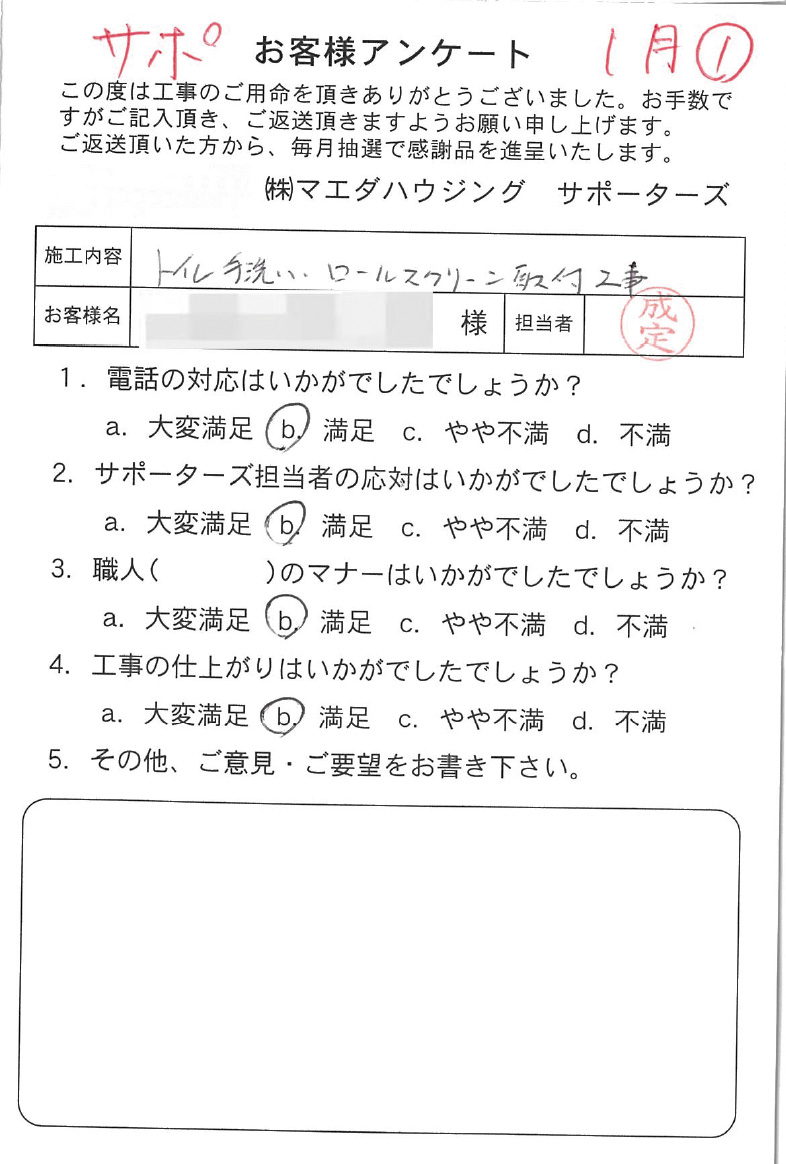 サポ お客様アンケート 1月 ①
この度は工事のご用命を頂きありがとうございました。お手数で
すがご記入頂き、ご返送頂きますようお願い申し上げます。
ご返送頂いた方から、毎月抽選で感謝品を進呈いたします。
㈱マエダハウジング サポーターズ
施工内容 トイレ手洗い、ロールスクリーン取付工事
お客様名 様 担当者 成定
1. 電話の対応はいかがでしたでしょうか？
a. 大変満足 b. 満足 c. やや不満 d. 不満
2. サポーターズ担当者の応対はいかがでしたでしょうか？
a. 大変満足 b. 満足 c. やや不満 d. 不満
3. 職人( )のマナーはいかがでしたでしょうか？
a. 大変満足 b. 満足 c. やや不満 d. 不満
4. 工事の仕上がりはいかがでしたでしょうか？
a. 大変満足 b. 満足 c. やや不満 d. 不満
5. その他、ご意見・ご要望をお書き下さい。